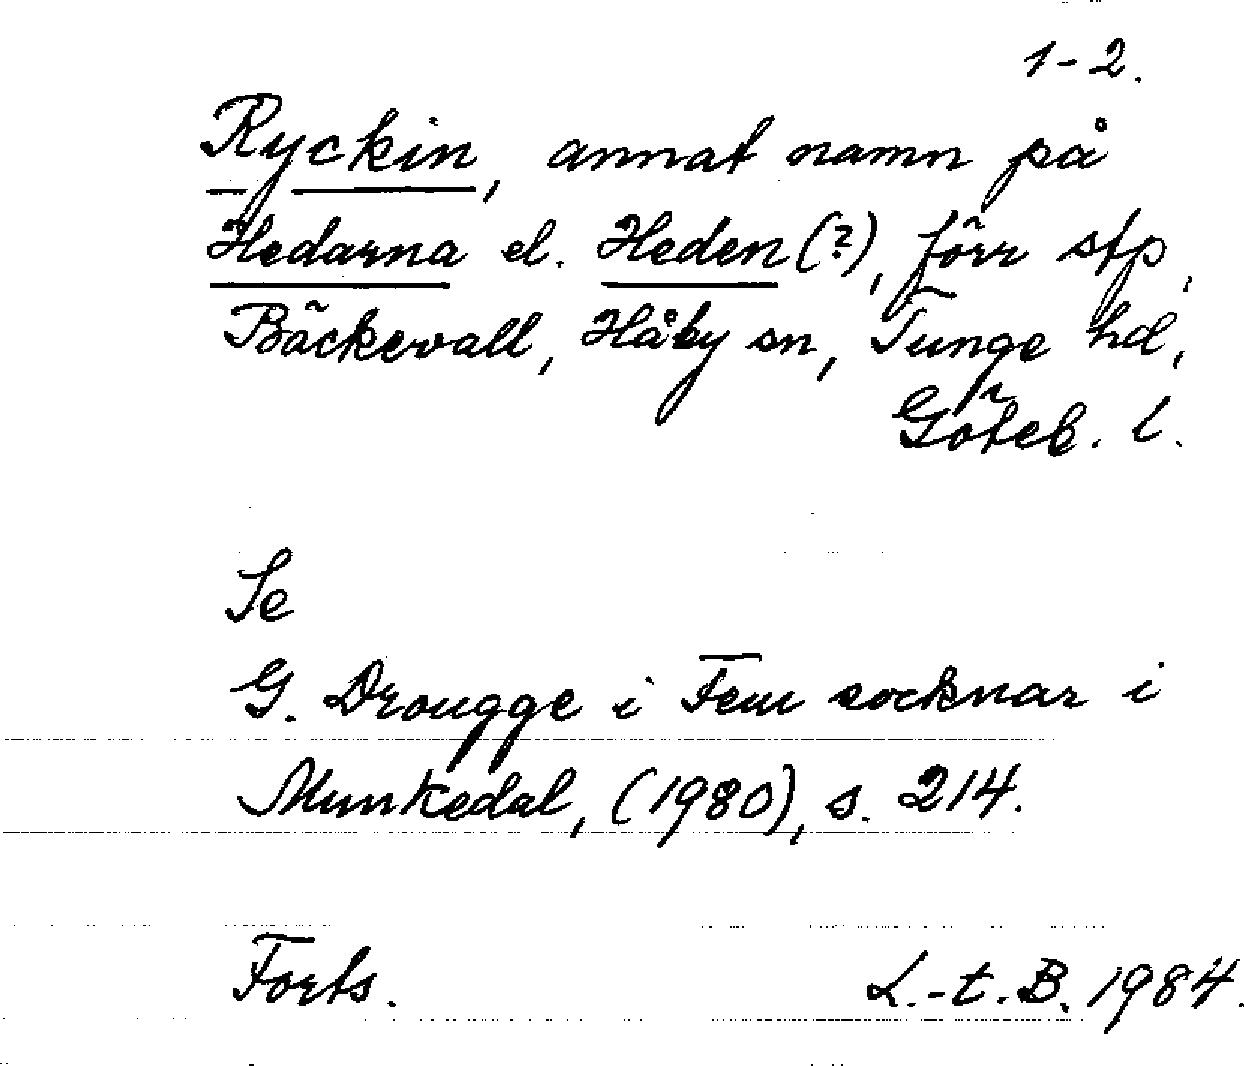 1-2.
Ryckin, annat namn på
Hedarna el. Heden (?), förr stp,
Bäckevall, Håby sn, Tunge hd,
Göteb. l.
Se
G. Drougge i Fem socknar i
Munkedal, (1980), s. 214.
Forts. L.-t. B. 1984.